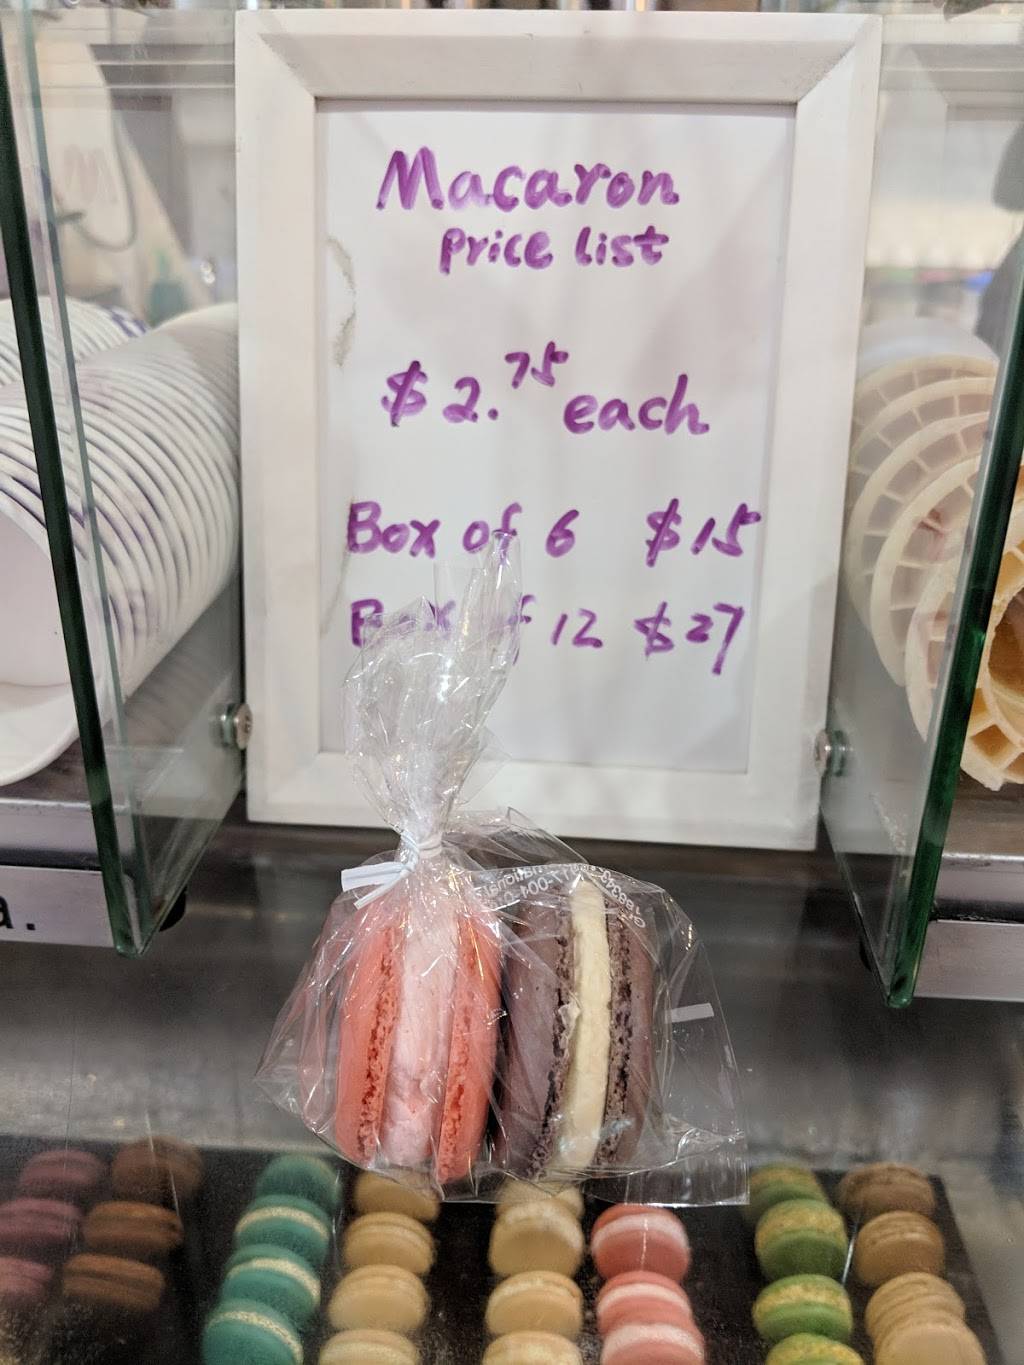 Macaron
Price list
$2.75 each
Box of 6 $15
Box of 12 $27
a.